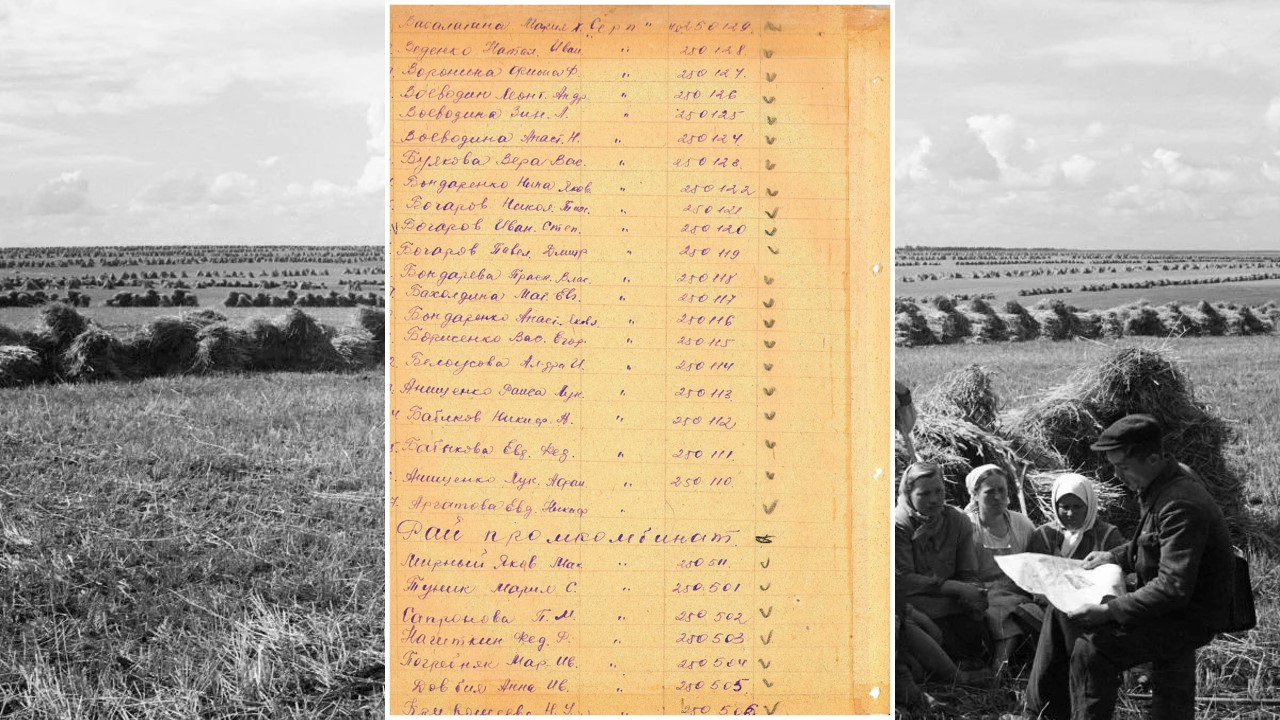 Мария К. "Серп" № 250129.
Зеденко Натал. Иван. " 250128.
Воронина Ф. " 250127.
Воеводин Леонт. Андр. " 250126
Воеводина Зин. Л. " 250125
Воеводина Анаст. Н. " 250124
Булкова Вера Вас. " 250123.
Бондаренко Нина Яков. " 250122
Богаров Никол. Тих. " 250121
Богаров Иван. Степ. " 250120
Богаров Павел Дмитр " 250119
Бондарева Праск. Влас. " 250118
Бахолдина Мар. Евг. " 250117
Бондаренко Анаст. Яковл. " 250116
Борисенко Вас. Егор. " 250115
Белоусова И. " 250114
Анищенко Раиса Лук. " 250113
Бабиков Никиф. А. " 250112
Евд. Фед. " 250111
Анищенко Лук. " 250110.
Аргатова Евд. Никиф "
Рай промкомбинат.
Мирный Яков Мак " 250511.
Туник Мария С. " 250501
Сапронова П. М. " 250502
Нагиткин Фед. Ф. " 250503
Погребняк Мар. Ив. " 250504
Довбия Анна Ив. " 250505
250506